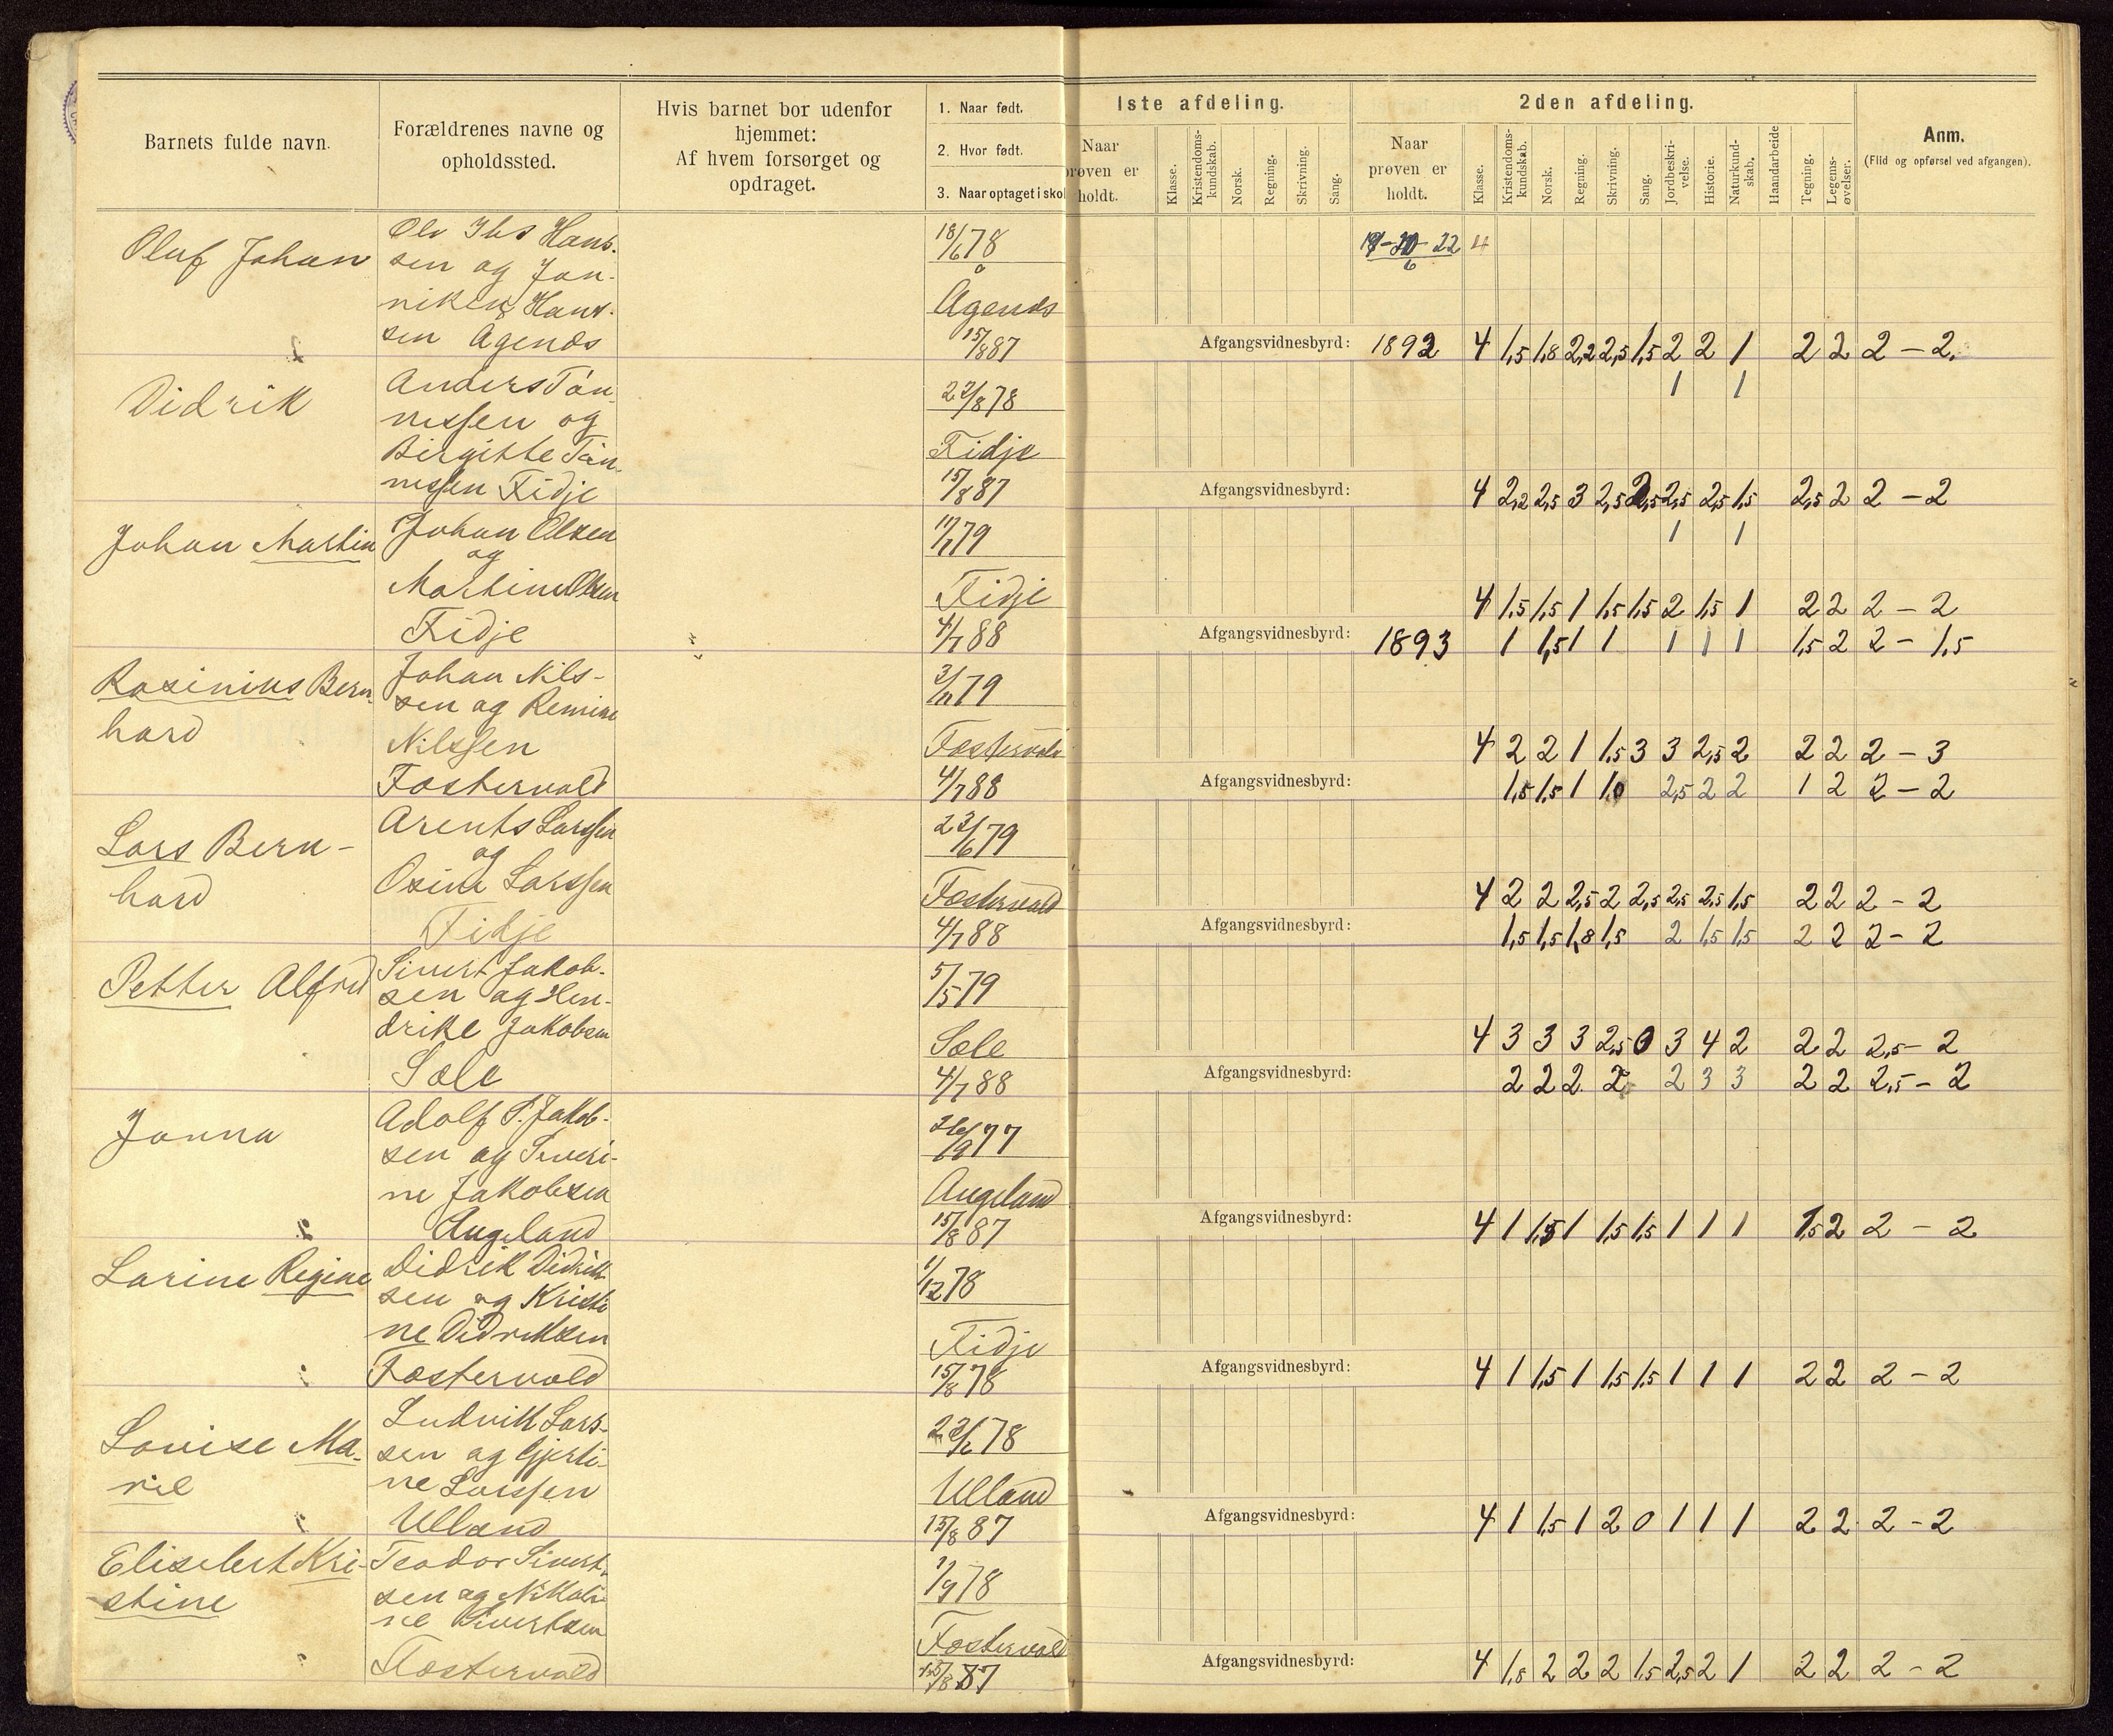 Barnets fulde navn.
Forældrenes navne og
opholdssted.
Hvis barnet bor udenfor
hjemmet:
Af hvem forsørget og
opdraget.
1. Naar født.
2. Hvor født.
3. Naar optaget i skol
1ste afdeling.
2den afdeling.
Naar
prøven er
holdt.
Klasse.
Kristendoms-
kundskab.
Norsk.
Regning.
Skrivning.
Sang.
Naar
prøven er
holdt.
Klasse.
Kristendoms-
kundskab.
Norsk.
Regning.
Skrivning.
Sang.
Jordbeskri-
velse.
Historie.
Naturkund-
skab.
Haandarbeide
Tegning.
Legems-
øvelser.
Anm.
(Flid og opførsel ved afgangen).
Oluf Johan
Ole Jhs Hans-
sen og Jon-
niken Hans-
sen Ågends
18/6 78
Ågends
15/8 87
22 4
6
Afgangsvidnesbyrd: 1892 4 1,5 1,8 2,2 2,5 1,5 2 2 1 2 2 2 - 2.
1 1
Didrik
Anders Tön-
nessen og
Birgitte Tön-
nessen Fidje
22/8 78
Fidje
15/8 87
Afgangsvidnesbyrd: 4 2,2 2,5 3 2,5 2,5 2,5 2,5 1,5 2,5 2 2 - 2
1 1
Johan Martin
Johan Olsen
og
Martine Olsen
Fidje
11/1 79
Fidje
4/7 88
4 1,5 1,5 1 1,5 1,5 2 1,5 1 2 2 2 - 2
Afgangsvidnesbyrd: 1893 1 1,5 1 1 1 1 1 1,5 2 2 - 1,5
Rasinius Bern-
hard
Johan Nils-
sen og Remine
Nilssen
Fostervold
3/11 79
Fostervold
4/7 88
4 2 2 1 1,5 3 3 2,5 2 2 2 2 - 3
Afgangsvidnesbyrd: 1,5 1,5 1 1,0 2,5 2 2 1 2 2 - 2
Lars Bern-
hard
Arents Larssen
og
Osine Larssen
Fidje
23/6 79
Fostervold
4/7 88
4 2 2 2,5 2 2,5 2,5 2,5 1,5 2 2 2 - 2
Afgangsvidnesbyrd: 1,5 1,5 1,8 1,5 2 1,5 1,5 2 2 2 - 2
Petter Alfred
Sivert Jakob-
sen og Hen-
drike Jakobsen
Sæle
5/5 79
Sæle
4/7 88
4 3 3 3 2,5 0 3 4 2 2 2 2,5 - 2
Afgangsvidnesbyrd: 2 2 2 2 2 3 3 2 2 2,5 - 2
Jonna
Adolf S. Jakob-
sen og Severi-
ne Jakobsen
Augeland
26/9 77
Augeland
15/8 87
Afgangsvidnesbyrd: 4 1 1,5 1 1,5 1,5 1 1 1 1,5 2 2 - 2
Larine Regine
Didrik Didrik-
sen og Kristi
ne Didriksen
Fostervold
1/12 78
Fidje
15/8 78
Afgangsvidnesbyrd: 4 1 1,5 1 1,5 1,5 1 1 1 2 2 2 - 2
Lovise Ma-
rie
Ludvik Lars-
sen og Gjerti-
ne Larssen
Ulland
78
Ulland
15/8 87
Afgangsvidnesbyrd: 4 1 1,5 1 2 0 1 1 1 2 2 2 - 2
Elisebert Kri-
stine
Teodor Sivert-
sen og Nikoli
ne Sivertsen
Fostervold
78
Fostervold
15/8 87
Afgangsvidnesbyrd: 4 1,8 2 2 2 1,5 2,5 2 1 2 2 2 - 2